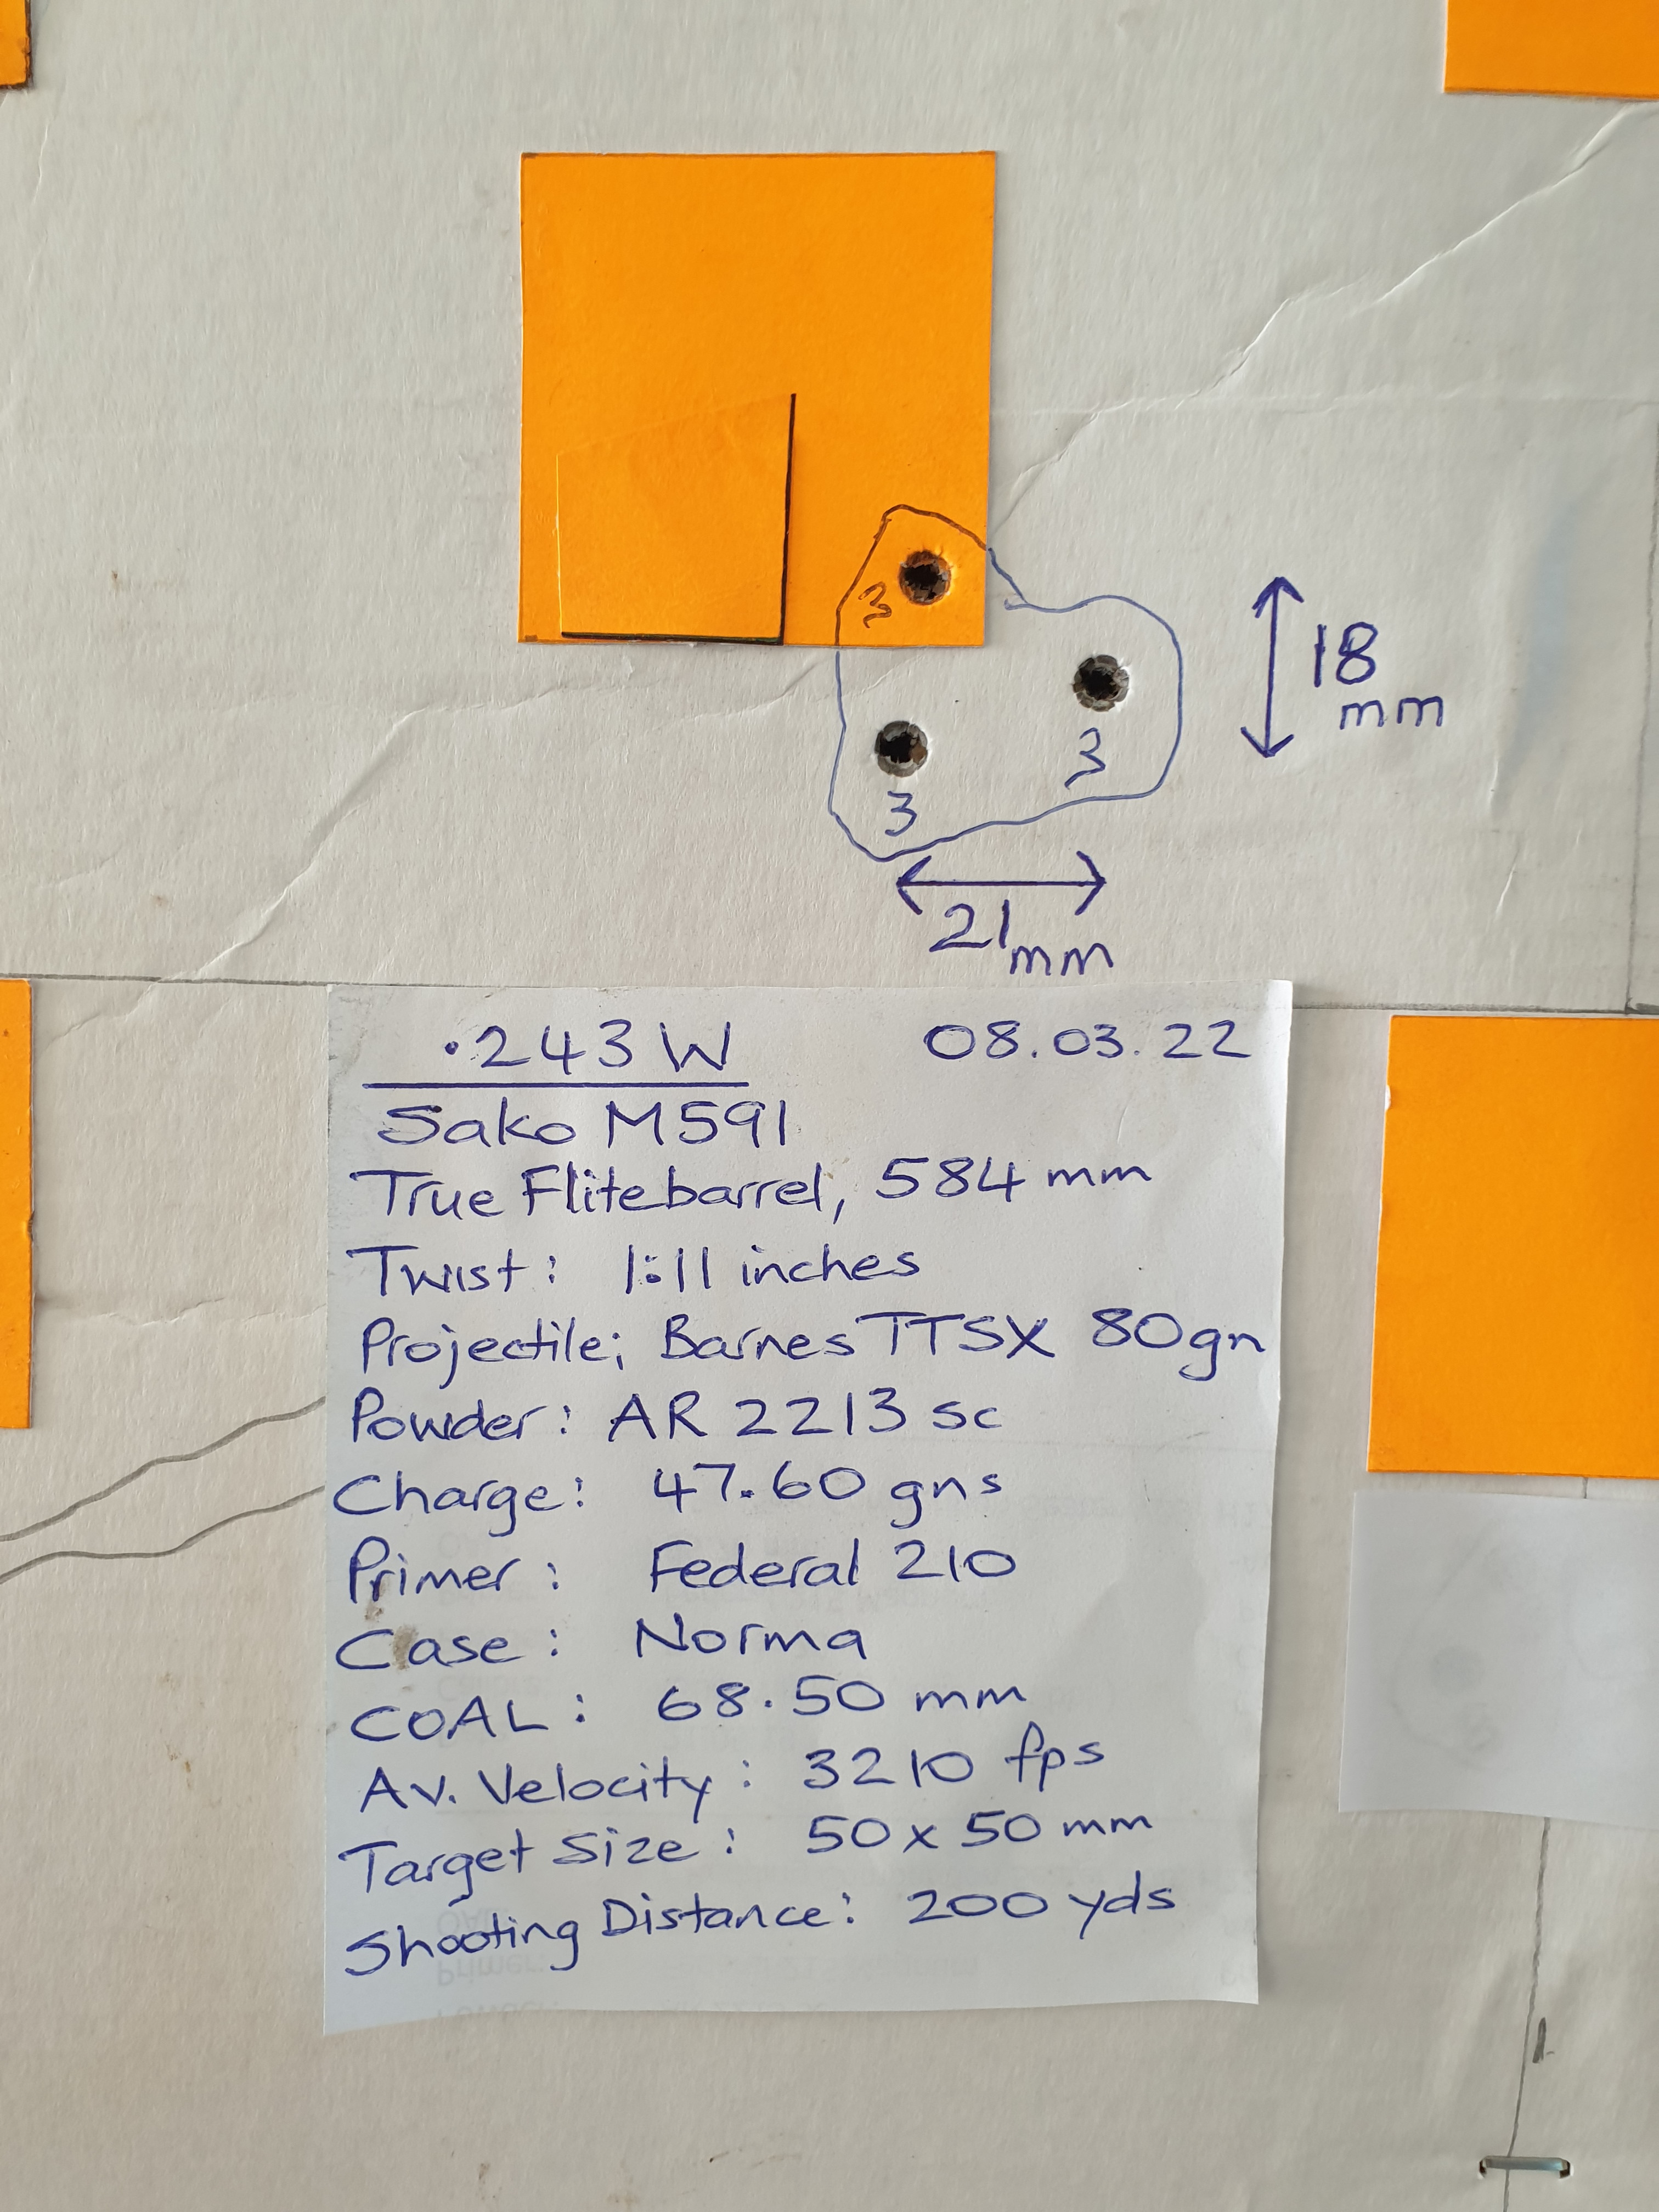 3
18
mm
3
3
21
mm
.243 W 08.03.22
Sako M591
True Flite barrel, 584 mm
Twist: 1:11 inches
Projectile; Barnes TTSX 80gn
Powder: AR 2213 sc
Charge: 47.60 gns
Primer: Federal 210
Case: Norma
COAL: 68.50 mm
Av. Velocity: 3210 fps
Target Size: 50 x 50 mm
Shooting Distance: 200 yds